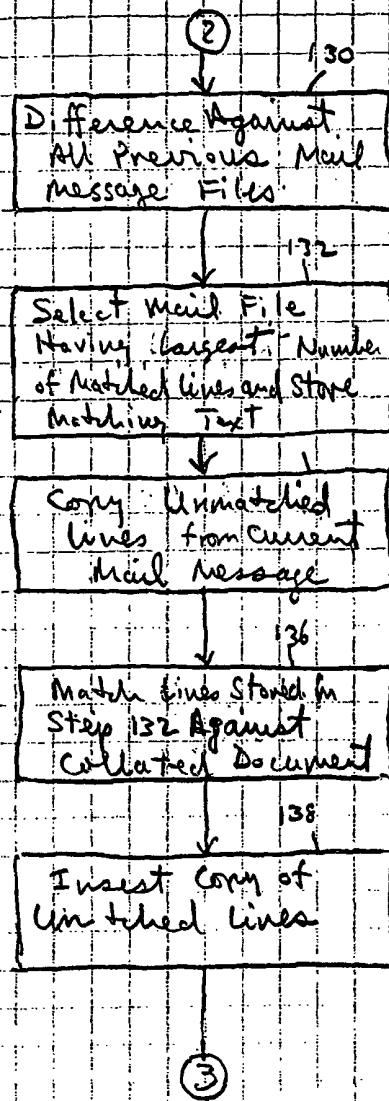 2
130
Difference Against
All Previous Mail
Message Files.
132
Select Mail File
Having Largest Number
of Matched Lines and Store
Matching Text
Copy Unmatched
Lines from Current
Mail Message
136
Match Lines Stored In
Step 132 Against
Collated Document
138
Insert Copy of
Lines
3